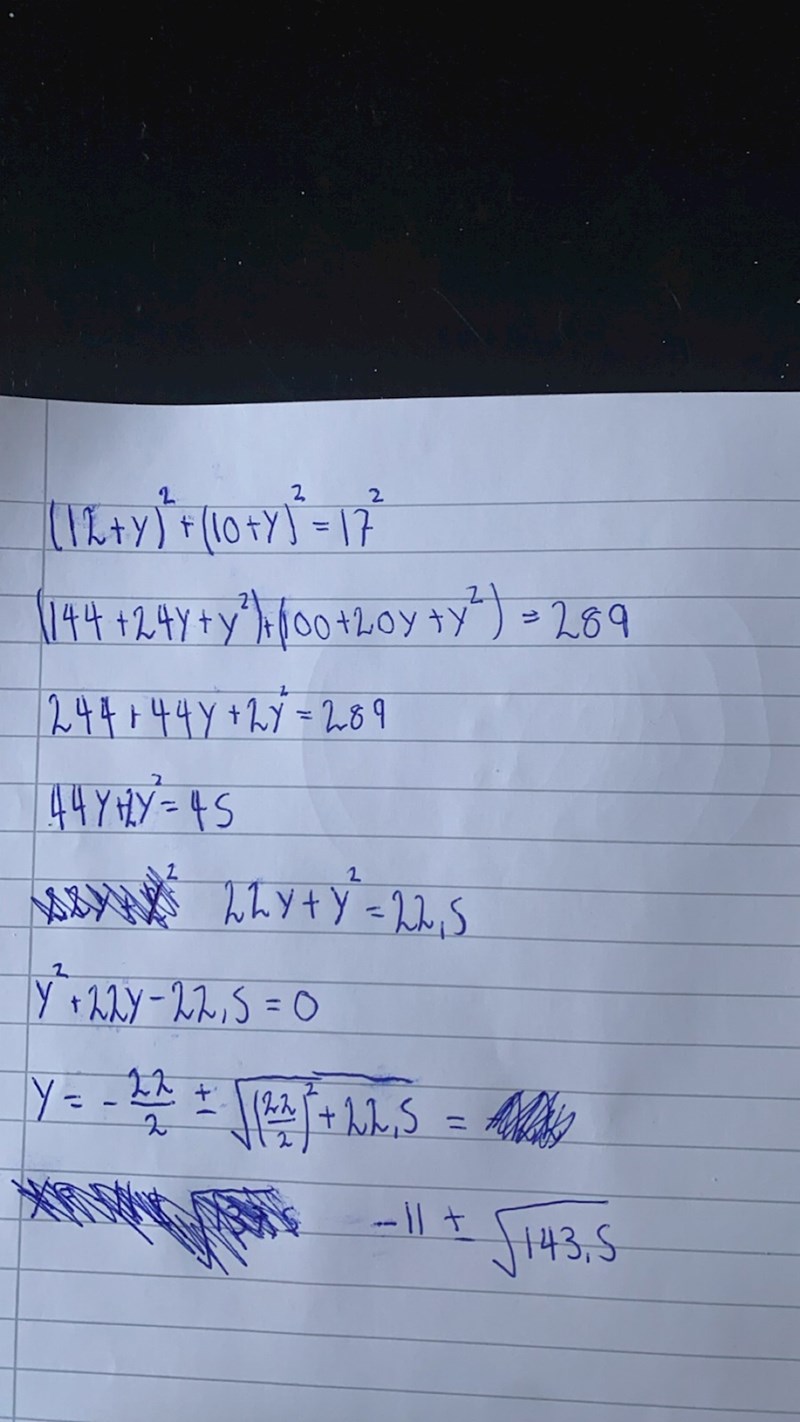 (12+y)² + (10+y)² = 17²
(144 + 24y + y²) + (100 + 20y + y²) = 289
244 + 44y + 2y² = 289
44y + 2y² = 45
22y + y² = 22,5
y² + 22y - 22,5 = 0
y = - 22/2 ± √((22/2)² + 22,5) =
-11 ± √143,5